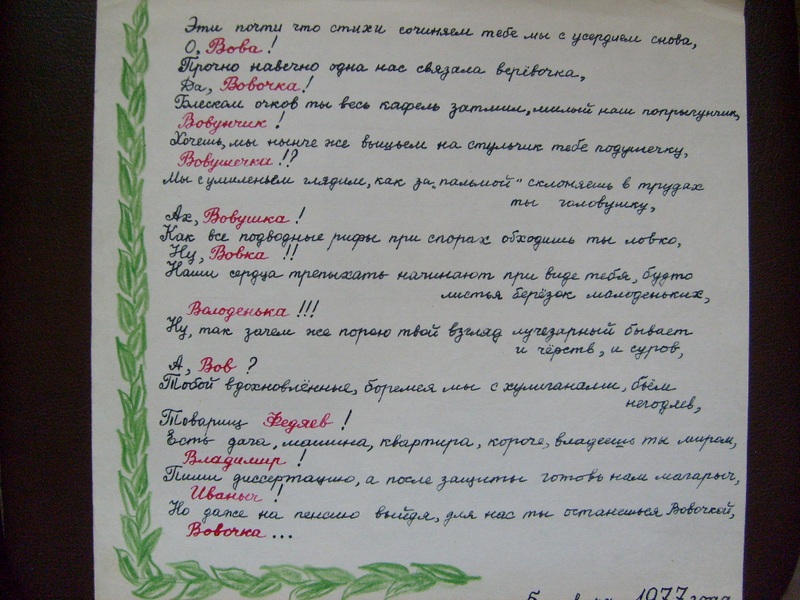 Эти почти что стихи сочиняем тебе мы с усердием снова,
О, Вова!
Прочно навечно одна нас связала верёвочка,
Да, Вовочка!
Блеском очков ты весь кафель затмил, милый наш попрыгунчик,
Вовунчик!
Хочешь, мы нынче же вышьем на стульчик тебе подушечку,
Вовушечка!?
Мы с умиленьем глядим, как за „пальмой" склоняешь в трудах
ты головушку,
Ах, Вовушка!
Как все подводные рифы при спорах обходишь ты ловко,
Ну, Вовка!!
Наши сердца трепыхать начинают при виде тебя, будто
листья берёзок молоденьких,
Володенька!!!
Ну, так зачем же порою твой взгляд лучезарный бывает
и чёрств, и суров,
А, Вов?
Тобой вдохновлённые, боремся мы с хулиганами, бьём
негодяев,
Товарищ Федяев!
Есть дача, машина, квартира, короче, владеешь ты миром,
Владимир!
Пиши диссертацию, а после защиты готовь нам магарыч,
Иваныч!!
Но даже на пенсию выйдя, для нас ты останешься Вовочкой,
Вовочка...
5 1977 года